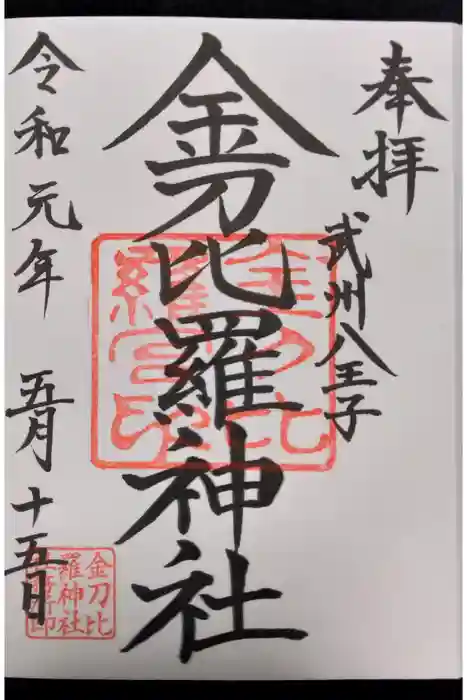 奉拝
武州八王子
金刀比羅神社
令和元年 五月十五日
金刀比
羅宮印
金刀比
羅神社